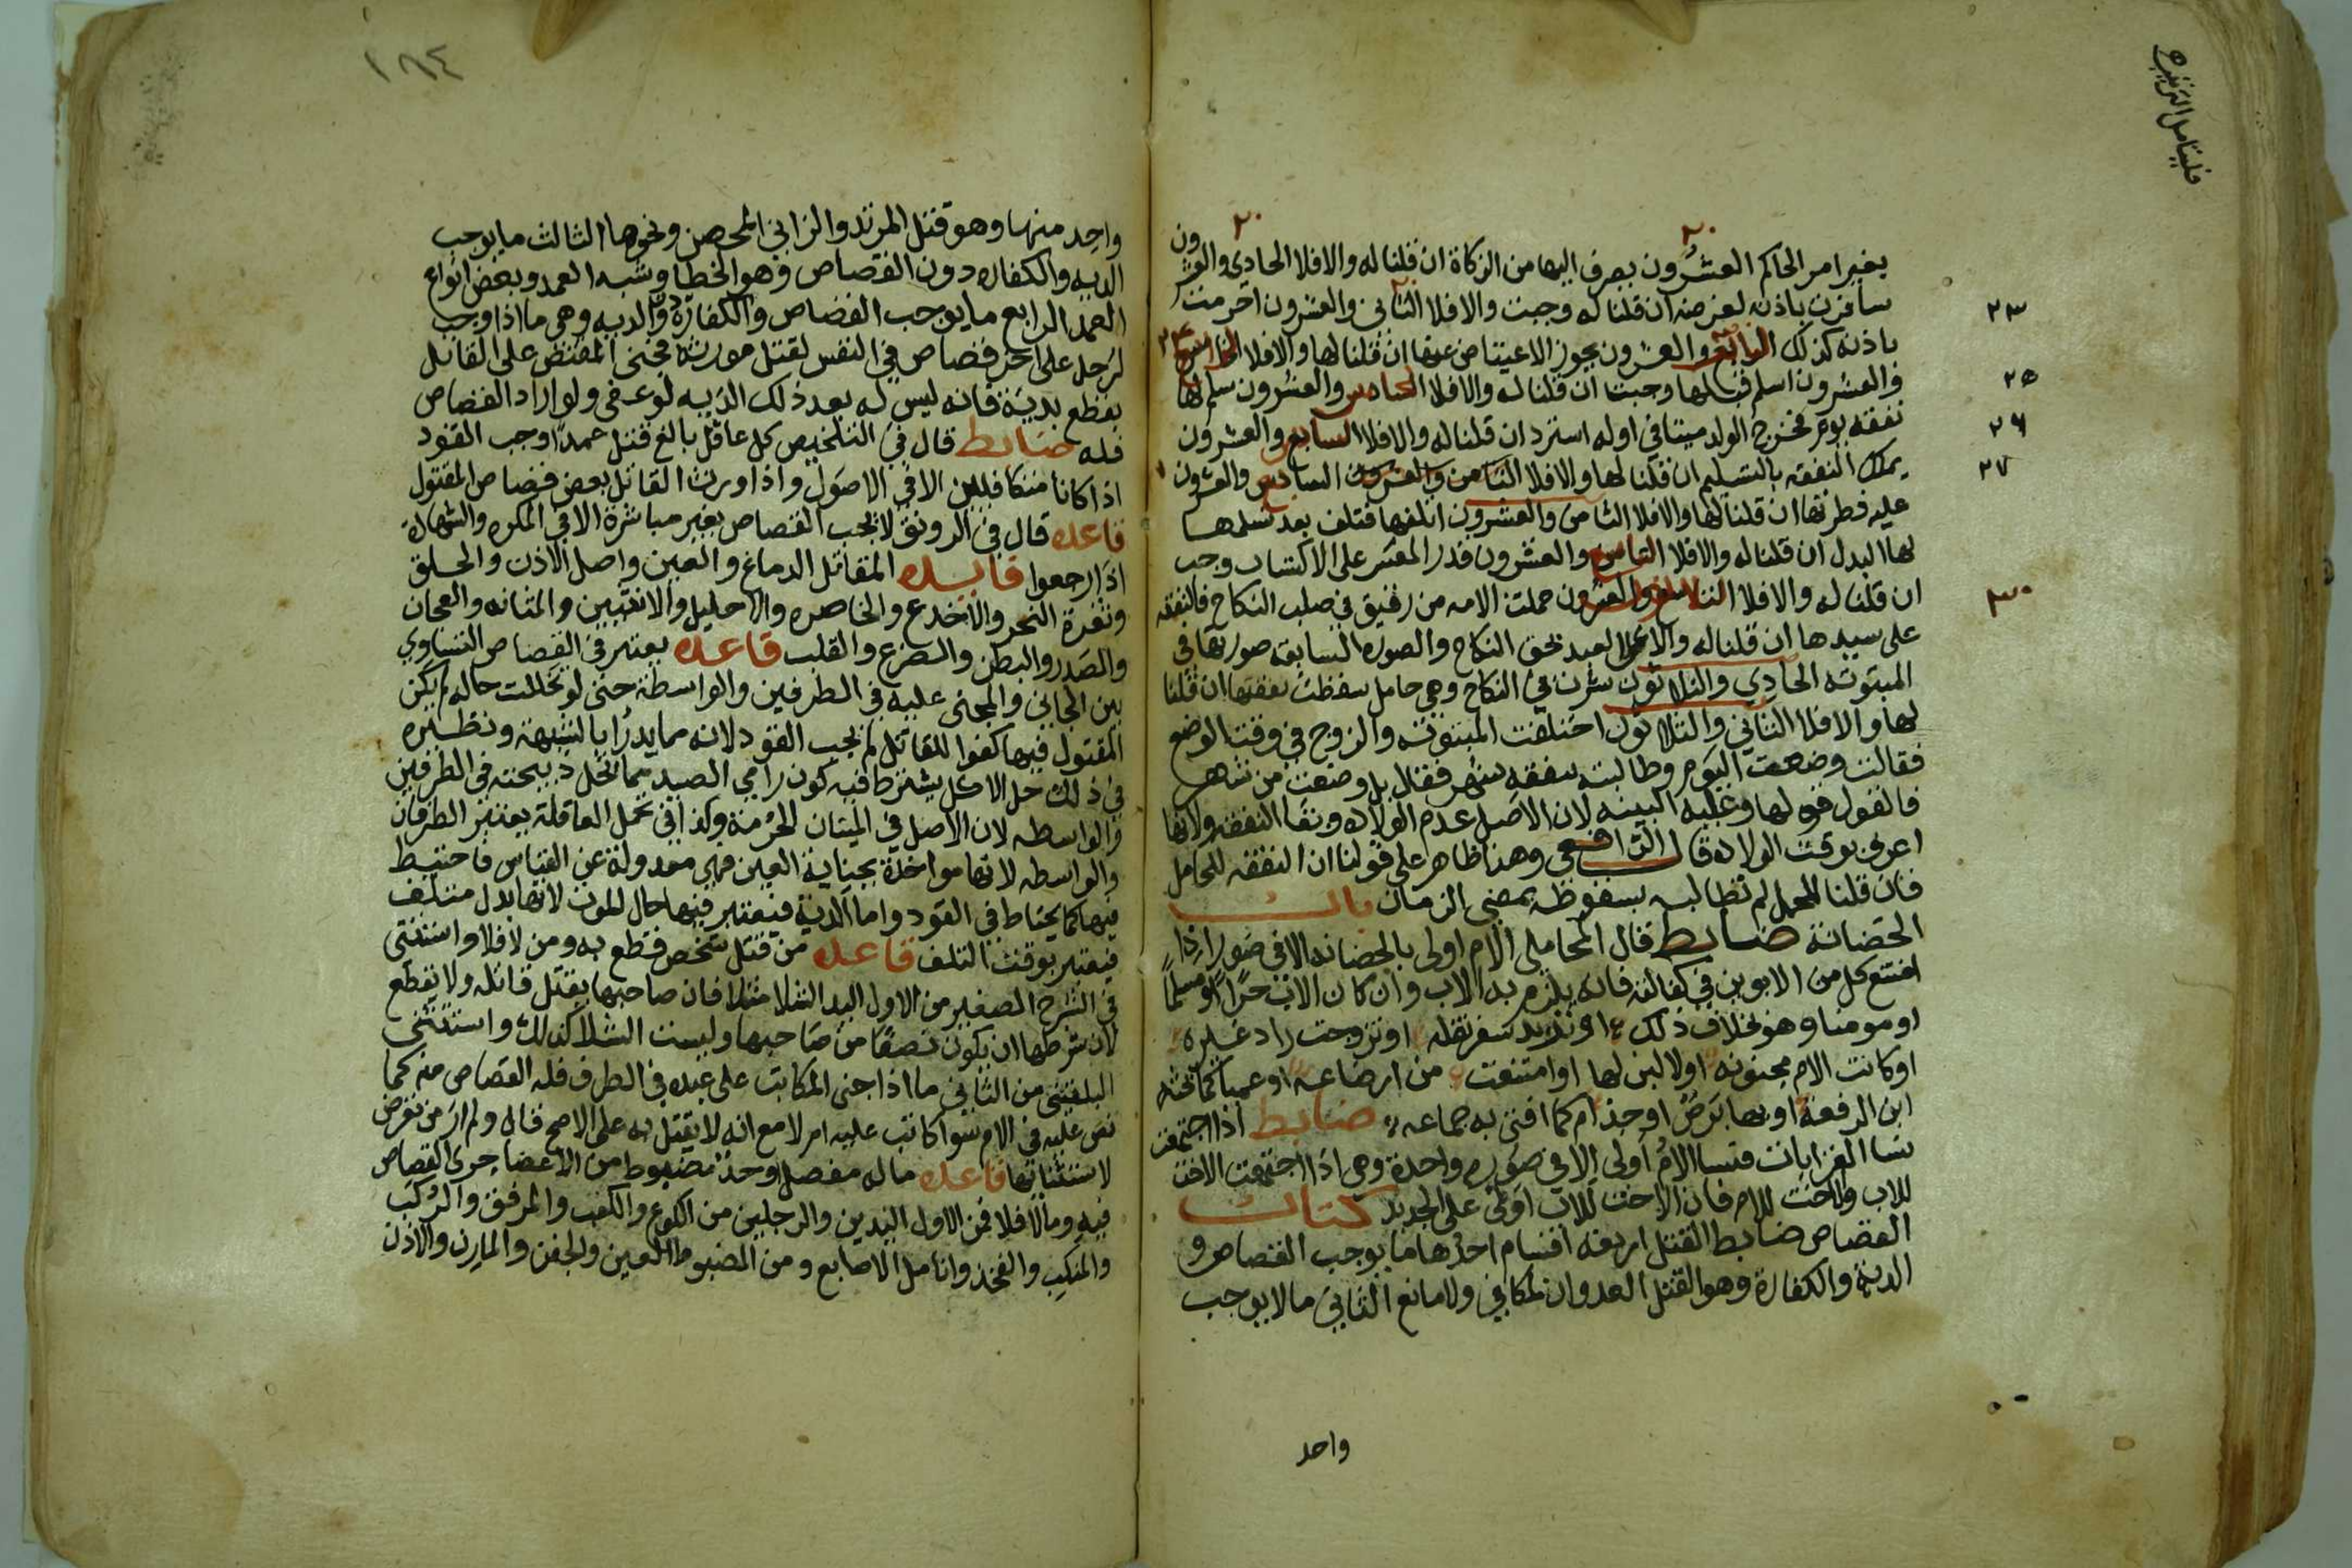 فليتامل الترتيب
بغير امر الحاكم العشرون يصرف اليها من الزكاة ان قلنا له والا فلا الحادي والعشرون
سافرت باذنه لغرضه ان قلنا له وجبت والا فلا الثاني والعشرون احرمت
باذنه كذلك الرابع والعشرون يجوز الاعتياض عنها ان قلنا لها والا فلا الخامس
والعشرون اسلم قبلها وجبت ان قلنا له والا فلا السادس والعشرون سلم لها
نفقة يوم فخرج الولد ميتا في اوله استرد ان قلنا له والا فلا السابع والعشرون
يملك النفقه بالتسليم ان قلنا لها والا فلا الثامن والعشرون السادس والعشرون
عليه فطرتها ان قلنا لها والا فلا الثامن والعشرون اتلفها فتلف بعد تسلمها
لها البدل ان قلنا له والا فلا التاسع والعشرون قدر المعسر على الاكتساب وجب
ان قلنا له والا فلا الثلاثون حملت الامه من رقيق في صلب النكاح فالنفقه
على سيدها ان قلنا له والا على العبد بحق النكاح والصوره السابقه صورتها في
المبتوته الحادي والثلاثون نشزت في النكاح وهي حامل سقطت نفقتها ان قلنا
لها والا فلا الثاني والثلاثون اختلفت المبتوته والزوج في وقت الوضع
فقالت وضعت اليوم وطالبته بنفقه شهر فقال بل وضعت من شهر
فالقول قولها وعليه البينه لان الاصل عدم الولاده وبقا النفقه ولانها
اعرف بوقت الولاده قال الرافعي وهذا ظاهر على قولنا ان النفقه للحامل
فان قلنا للحمل لم تطالبه بسقوطه بمضي الزمان باب
الحضانة ضابط قال المحاملي الام اولى بالحضانه الا في صور اذا
امتنع كل من الابوين في كفالته فانه يلزم به الاب وان كان الاب حرا او مسلما
او مومنا وهو بخلاف ذلك او يريد سفر نقله او تزوجت زاد غيره
او كانت الام مجنونه او لا لبن لها او امتنعت من ارضاعه او عميا كما بحثه
ابن الرفعة او بها برص او جذام كما افتى به جماعه ضابط اذا اجتمعت
نسا القرابات فنسا الام اولى الا في صوره واحدة وهي اذا اجتمعت الاخت
للاب والاخت للام فان الاخت للاب اولى على الجديد كتاب
القصاص ضابط القتل اربعه اقسام احدها ما يوجب القصاص و
الدية والكفارة وهو القتل العدوان لمكافي ولا مانع الثاني ما لا يوجب
واحد
٢٠
٢٠
٢٣
٢٥
٢٦
٢٧
٣٠
١٨٤
واحد منها وهو قتل المرتد والزاني المحصن ونحوها الثالث ما يوجب
الديه والكفاره دون القصاص وهو الخطا وشبه العمد وبعض انواع
العمد الرابع ما يوجب القصاص والكفارة والديه وهي ما اذا وجب
لرجل على اخر قصاص في النفس لقتل مورثه فجنى المقتص على القاتل
بقطع يديه فانه ليس له بعد ذلك الديه لو عفى ولو اراد القصاص
فله ضابط قال في التلخيص كل عاقل بالغ قتل عمدا وجب القود
اذا كانا متكافيين الا في الاصول واذا ورث القاتل بعض قصاص المقتول
قاعده قال في الرونق لا يجب القصاص بغير مباشرة الا في المكره والشهادة
اذا رجعوا فايده المقاتل الدماغ والعين واصل الاذن والحلق
وثغرة النحر والاخدع والخاصره والاحليل والانثيين والمثانه والعجان
والصدر والبطن والضرع والقلب قاعده يعتبر في القصاص التساوي
بين الجاني والمجنى عليه في الطرفين والواسطة حتى لو تخللت حاله لم يكن
المقتول فيها كفوا للقاتل لم يجب القود لانه مما يدرا بالشبهة ونظيره
في ذلك حل الاكل يشترط فيه كون رامي الصيد ممن تحل ذبيحته في الطرفين
والواسطه لان الاصل في الميتات الحرمة وكذا في تحمل العاقلة يعتبر الطرفان
والواسطه لانها مواخذة بجناية الغير فهي معدولة عن القياس فاحتيط
فيها كما يحتاط في القود واما الدية فيعتبر فيها حال الموت لانها بدل متلف
فيعتبر بوقت التلف قاعده من قتل شخص قطع به ومن لا فلا واستثنى
في الشرح الصغير من الاول اليد الشلا مثلا فان صاحبها يقتل قاتله ولا يقطع
لان شرطها ان يكون نصفا من صاحبها وليست الشلا كذلك واستثنى
البلقيني من الثاني ما اذا جنى المكاتب على عبده في الطرف فله القصاص منه كما
نص عليه في الام سوا كاتب عليه ام لا مع انه لا يقتل به على الاصح قال ولم ار من تعرض
لاستثنائها قاعده ما له مفصل او حد مضبوط من الاعضا جرى القصاص
فيه وما لا فلا فمن الاول اليدين والرجلين من الكوع والكعب والمرفق والركب
والمنكب والفخذ وانامل الاصابع ومن المضبوط العين والجفن والمارن والاذن